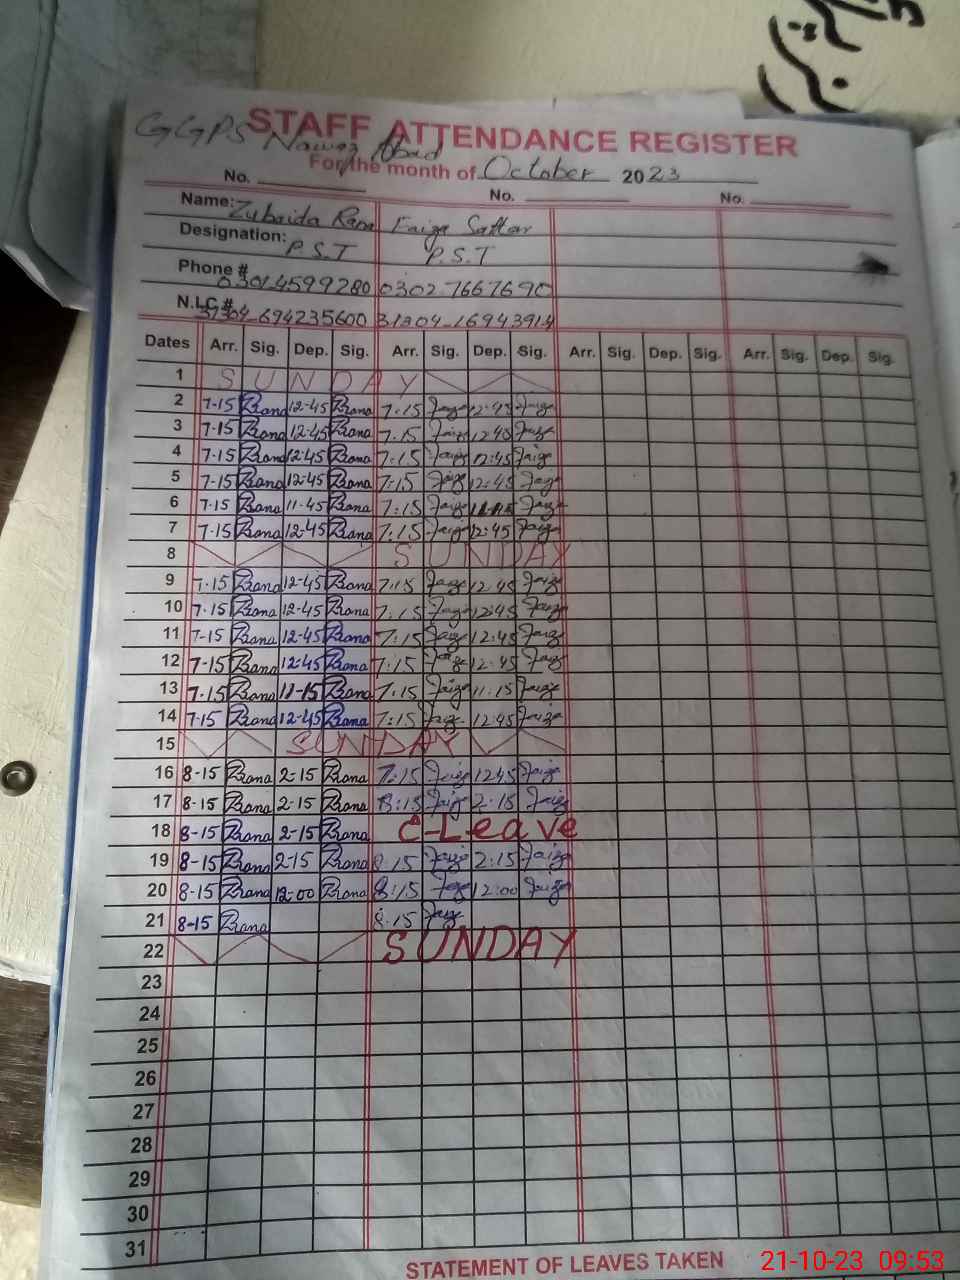 GGPS Nawaz Abad
STAFF ATTENDANCE REGISTER
For the month of October 2023
No. No. No.
Name: Zubaida Rana Faiza Sattar
Designation: P.S.T P.S.T
Phone # 03014599280 0302-7667690
N.I.C # 31304-694235600 31304-16943914
Dates Arr. Sig. Dep. Sig. Arr. Sig. Dep. Sig. Arr. Sig. Dep. Sig. Arr. Sig. Dep. Sig.
1 SUNDAY
2 7-15 Rana 12-45 Rana 7:15 Faiza 12:45 Faiza
3 7-15 Rana 12-45 Rana 7:15 Faiza 12:45 Faiza
4 7-15 Rana 12-45 Rana 7:15 Faiza 12:45 Faiza
5 7-15 Rana 12-45 Rana 7:15 Faiza 12:45 Faiza
6 7-15 Rana 11-45 Rana 7:15 Faiza Faiza
7 7-15 Rana 12-45 Rana 7:15 Faiza 12:45 Faiza
8 SUNDAY
9 7-15 Rana 12-45 Rana 7:15 Faiza 12:45 Faiza
10 7-15 Rana 12-45 Rana 7:15 Faiza 12:45 Faiza
11 7-15 Rana 12-45 Rana 7:15 Faiza 12:45 Faiza
12 7-15 Rana 12-45 Rana 7:15 Faiza 12:45 Faiza
13 7-15 Rana 11-15 Rana 7:15 Faiza 11:15 Faiza
14 7-15 Rana 12-45 Rana 7:15 Faiza 12:45 Faiza
15 SUNDAY
16 8-15 Rana 2-15 Rana 7:15 Faiza 12:45 Faiza
17 8-15 Rana 2-15 Rana 8:15 Faiza 2:15 Faiza
18 8-15 Rana 2-15 Rana C-Leave
19 8-15 Rana 2-15 Rana 8:15 Faiza 2:15 Faiza
20 8-15 Rana 12-00 Rana 8:15 Faiza 12:00 Faiza
21 8-15 Rana 8:15 Faiza
22 SUNDAY
23
24
25
26
27
28
29
30
31
STATEMENT OF LEAVES TAKEN
21-10-23 09:53